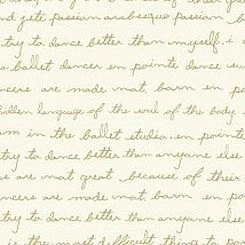 of their
nd jete passion arabesque passion b
try to dance better than myself. i
a ballet dancer en pointe dance su
ncers are made not, born en po
hidden language of the soul of the body
rm in the ballet studio. en pointe
try to dance better than anyone else
s are not great because of their
ncers are made not, born en p
try to dance better than anyone els
is the most difficult thing to